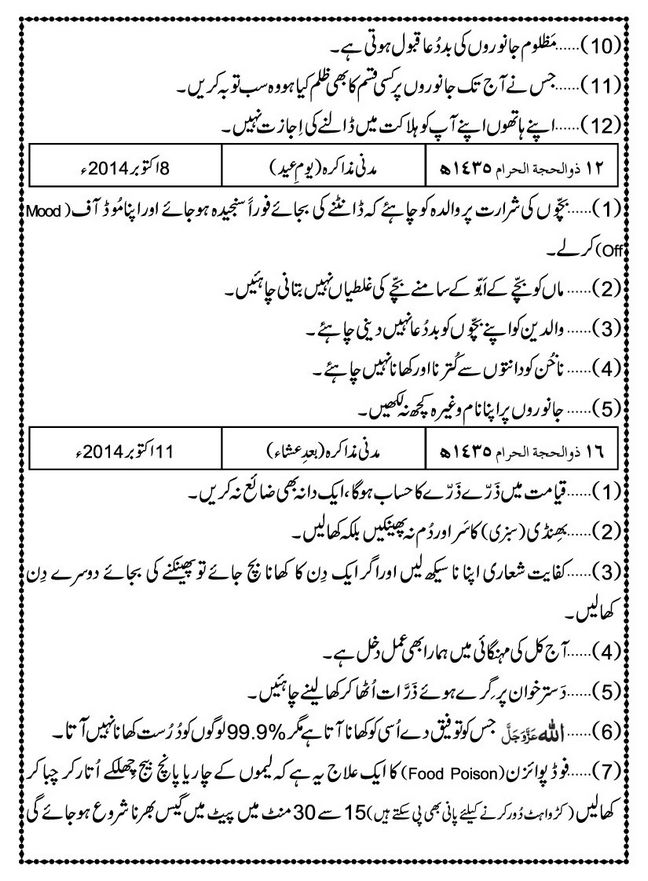 (10)......مَظلوم جانوروں کی بددُعا قبول ہوتی ہے۔
(11)......جس نے آج تک جانوروں پر کسی قسم کا بھی ظلم کیا ہو وہ سب توبہ کریں۔
(12)......اپنے ہاتھوں اپنے آپ کو ہلاکت میں ڈالنے کی اِجازت نہیں۔
١٢ ذوالحجة الحرام ١٤٣٥ھ مدنی مذاکرہ (یومِ عید) 8اکتوبر2014ء
(1)......بچّوں کی شرارت پر والدہ کو چاہئے کہ ڈانٹنے کی بجائے فوراً سنجیدہ ہوجائے اور اپنا مُوڈ آف(Mood
Off)کرلے۔
(2)......ماں کو بچّے کے اَبّو کے سامنے بچّے کی غلطیاں نہیں بتانی چاہئیں۔
(3)......والدین کو اپنے بچّوں کو بددُعا نہیں دینی چاہئے۔
(4)......ناخُن کو دانتوں سے کُترنا اور کھانا نہیں چاہئے۔
(5)......جانوروں پر اپنا نام وغیرہ کچھ نہ لکھیں۔
١٦ ذوالحجة الحرام ١٤٣٥ھ مدنی مذاکرہ (بعدِ عشاء) 11اکتوبر2014ء
(1)......قیامت میں ذَرّے ذَرّے کا حساب ہوگا،ایک دانہ بھی ضائع نہ کریں۔
(2)......بِھنڈی (سبزی) کا سَر اور دُم نہ پھینکیں بلکہ کھالیں۔
(3)......کفایت شعاری اپنانا سیکھ لیں اور اگر ایک دِن کا کھانا بچ جائے تو پھینکنے کی بجائے دوسرے دِن
کھالیں۔
(4)......آج کل کی مہنگائی میں ہمارا بھی عمل دَخل ہے۔
(5)......دَسترخوان پر گِرے ہوئے ذَرَّات اُٹھا کر کھالینے چاہئیں۔
(6)......اللہ عَزَّوَجَلَّ جس کو توفیق دے اُسی کو کھانا آتا ہے مگر %99.9 لوگوں کو دُرُست کھانا نہیں آتا۔
(7)......فوڈ پوائزن(Food Poison) کا ایک علاج یہ ہے کہ لیموں کے چار یا پانچ بیج چھلکے اُتار کر چبا کر
کھالیں (کڑواہٹ دُور کرنے کیلئے پانی بھی پی سکتے ہیں)15 سے 30 منٹ میں پیٹ میں گیس بھرنا شروع ہوجائے گی